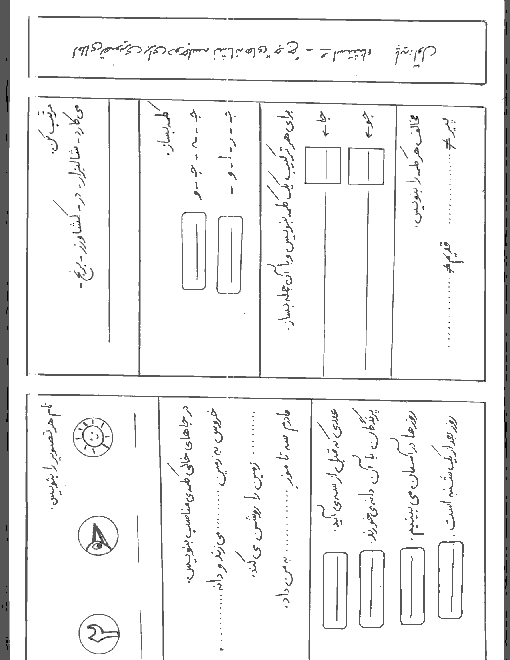 مرتب کن.
می‌کارد - شالیزار - در - کشاورز - برنج -
کلمه بساز.
برای هر ترکیب یک کلمه بنویس و با آن جمله بساز.
جا ←
جو ←
مخالف هر کلمه را بنویس.
قدیم ≠
نام هر تصویر را بنویس.
در جاهای خالی کلمه‌ی مناسب بنویس.
خروس به زمین .......... می‌زند و دانه ..........
.......... زمین را روشن می‌کند.
مادرم سه تا موز .......... به من داد.
عددی که قبل از سه می‌آید.
پرندگان با آن دانه می‌خورند.
روزها در آسمان می‌بینیم.
روز بعد از یک‌شنبه است.